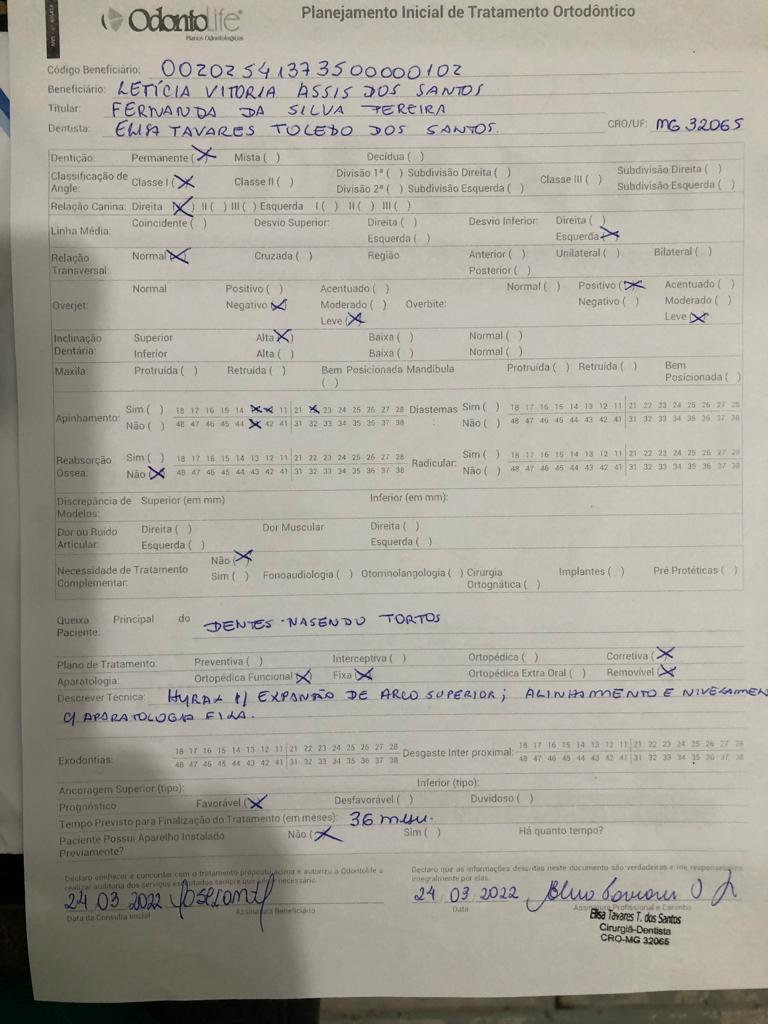 OdontoLife
Planos Odontológicos
Planejamento Inicial de Tratamento Ortodôntico
Código Beneficiário: 00202541373500000102
Beneficiário: LETÍCIA VITORIA ASSIS DOS SANTOS
Titular: FERNANDA DA SILVA PEREIRA
Dentista: ELISA TAVARES TOLEDO DOS SANTOS. CRO/UF: MG 32065
Dentição: Permanente (X) Mista ( ) Decídua ( )
Classificação de Angle: Classe I (X) Classe II ( ) Divisão 1ª ( ) Subdivisão Direita ( ) Classe III ( ) Subdivisão Direita ( )
Divisão 2ª ( ) Subdivisão Esquerda ( ) Subdivisão Esquerda ( )
Relação Canina: Direita I(X) II ( ) III ( ) Esquerda I ( ) II ( ) III ( )
Linha Média: Coincidente ( ) Desvio Superior: Direita ( ) Desvio Inferior: Direita ( )
Esquerda ( ) Esquerda (X)
Relação Transversal: Normal (X) Cruzada ( ) Região Anterior ( ) Unilateral ( ) Bilateral ( )
Posterior ( )
Normal Positivo ( ) Acentuado ( ) Normal ( ) Positivo (X) Acentuado ( )
Overjet: Negativo (X) Moderado ( ) Overbite: Negativo ( ) Moderado ( )
Leve (X) Leve (X)
Inclinação Dentária: Superior Alta (X) Baixa ( ) Normal ( )
Inferior Alta ( ) Baixa ( ) Normal ( )
Maxila: Protruída ( ) Retruída ( ) Bem Posicionada ( ) Mandíbula Protruída ( ) Retruída ( ) Bem Posicionada ( )
Apinhamento: Sim ( ) 18 17 16 15 14 X X 11 21 X 23 24 25 26 27 28 Diastemas Sim ( ) 18 17 16 15 14 13 12 11 21 22 23 24 25 26 27 28
Não ( ) 48 47 46 45 44 X 42 41 31 32 33 34 35 36 37 38 Não ( ) 48 47 46 45 44 43 42 41 31 32 33 34 35 36 37 38
Reabsorção Óssea: Sim ( ) 18 17 16 15 14 13 12 11 21 22 23 24 25 26 27 28 Radicular: Sim ( ) 18 17 16 15 14 13 12 11 21 22 23 24 25 26 27 28
Não (X) 48 47 46 45 44 43 42 41 31 32 33 34 35 36 37 38 Não ( ) 48 47 46 45 44 43 42 41 31 32 33 34 35 36 37 38
Discrepância de Modelos: Superior (em mm) Inferior (em mm):
Dor ou Ruido Articular: Direita ( ) Dor Muscular Direita ( )
Esquerda ( ) Esquerda ( )
Necessidade de Tratamento Complementar: Não (X)
Sim ( ) Fonoaudiologia ( ) Otorrinolangologia ( ) Cirurgia Ortognática ( ) Implantes ( ) Pré Protéticas ( )
Queixa Principal do Paciente: DENTES NASENDO TORTOS
Plano de Tratamento: Preventiva ( ) Interceptiva ( ) Ortopédica ( ) Corretiva (X)
Aparatologia: Ortopédica Funcional (X) Fixa (X) Ortopédica Extra Oral ( ) Removível (X)
Descrever Técnica: HYRAX P/ EXPANSÃO DE ARCO SUPERIOR; ALINHAMENTO E NIVELAMEN
C/ APARATOLOGIA FIXA.
Exodontias: 18 17 16 15 14 13 12 11 21 22 23 24 25 26 27 28 Desgaste Inter proximal: 18 17 16 15 14 13 12 11 21 22 23 24 25 26 27 28
48 47 46 45 44 43 42 41 31 32 33 34 35 36 37 38 48 47 46 45 44 43 42 41 31 32 33 34 35 36 37 38
Ancoragem Superior (tipo): Inferior (tipo):
Prognóstico Favorável (X) Desfavorável ( ) Duvidoso ( )
Tempo Previsto para Finalização do Tratamento (em meses): 36
Paciente Possui Aparelho Instalado Previamente? Não (X) Sim ( ) Há quanto tempo?
Declaro conhecer e concordar com o tratamento proposto acima e autorizo a Odontolife a
realizar auditoria dos serviços executados sempre que julgar necessário.
Declaro que as informações descritas neste documento são verdadeiras e me
integralmente por elas.
24 03 2022
Data da Consulta Inicial Assinatura Beneficiário
24 03 2022
Data Assinatura Profissional e Carimbo
Elisa Tavares T. dos Santos
Cirurgiã-Dentista
CRO-MG 32065